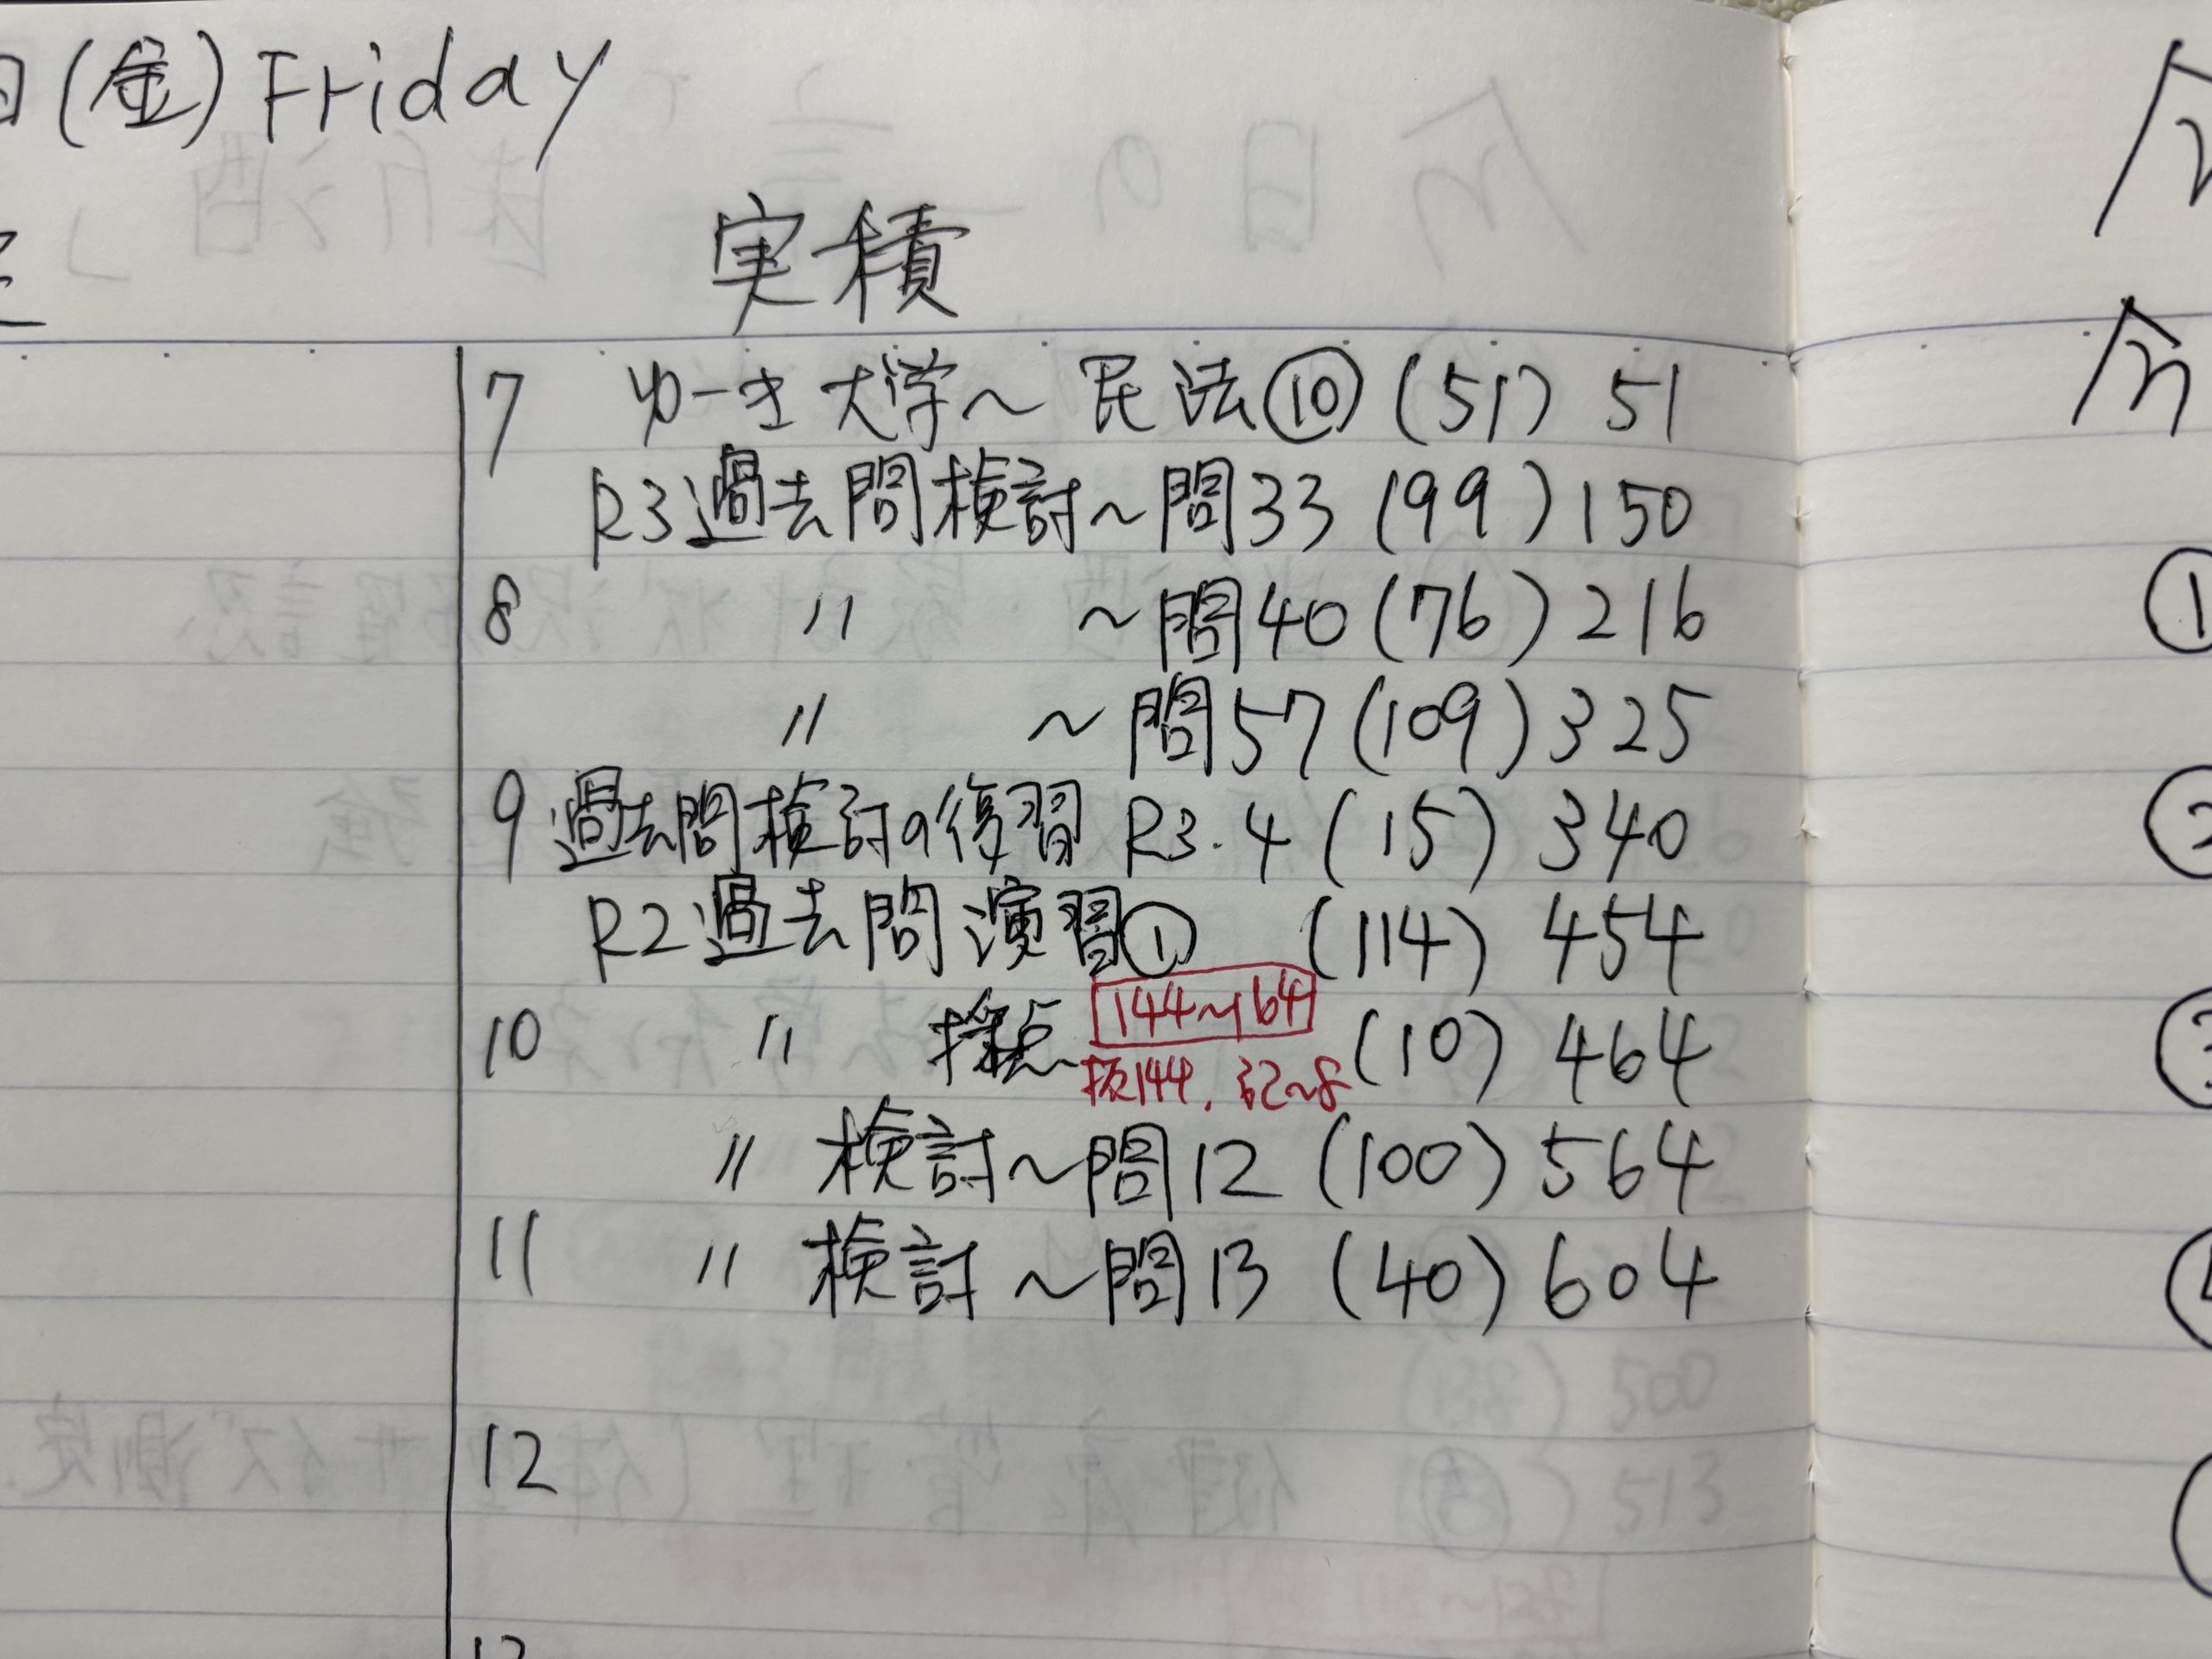 日(金)Friday
実積
7 ゆーき大学~民法⑩(51) 51
R3過去問検討~問33(99)150
8 〃 ~問40(76)216
〃 ~問57(109)325
9 過去問検討の復習 R3.4(15)340
R2過去問演習①(114)454
144~164
10 〃 採点(10)464
択144.記~8
〃 検討~問12(100)564
11 〃 検討~問13(40)604
12
①
②
③